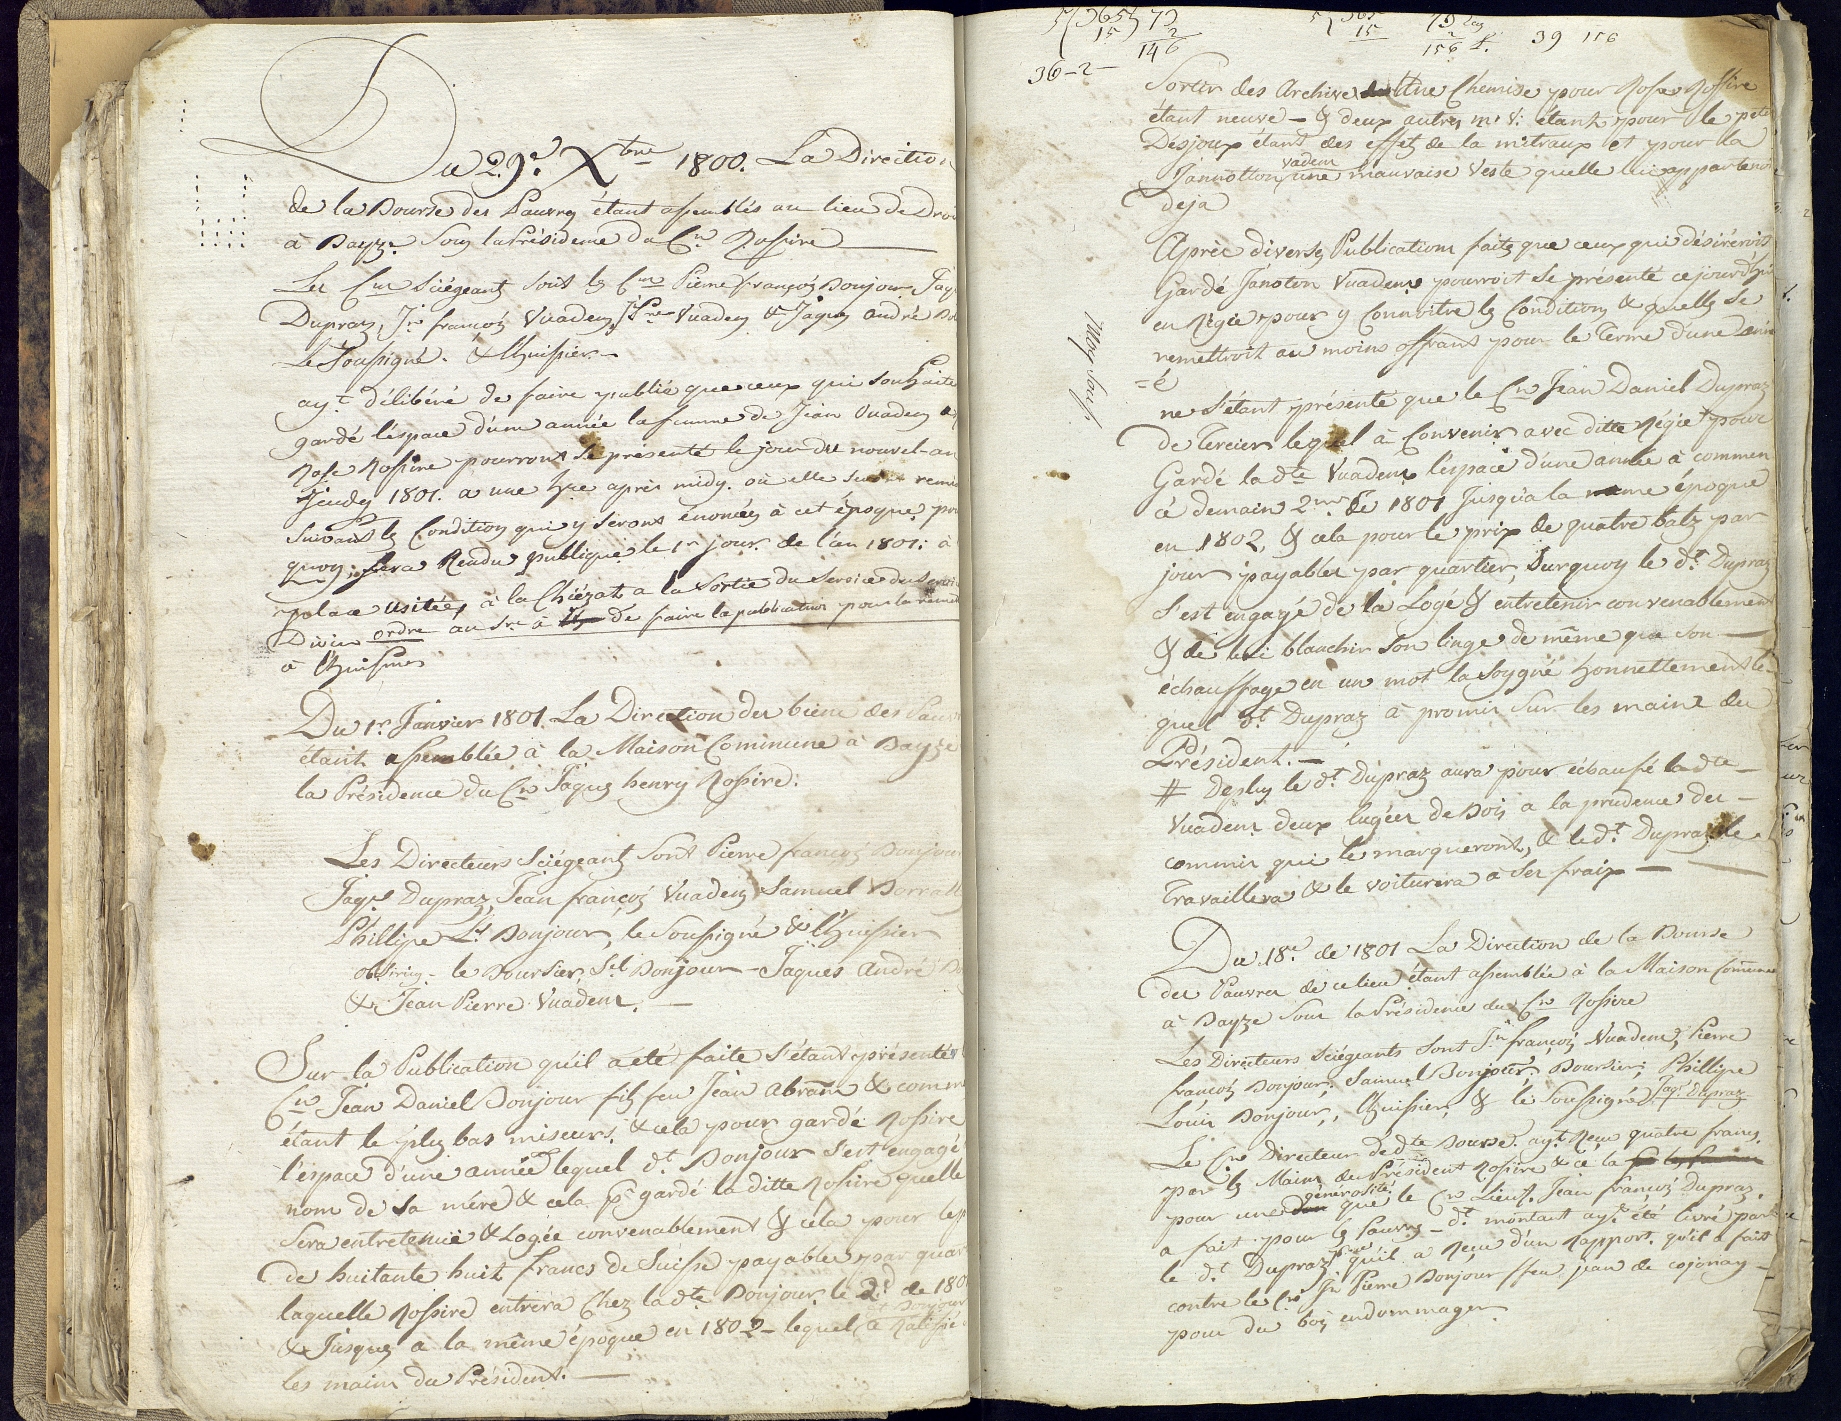 Du 29.e Xbre 1800. La Direction
de la Bourse des Pauvres étant assemblés au lieu de Droi
à Bayze Sous la Présidence du Cn Rossire
Les Cns Siégeants sont ls Cns Pierre françois Bonjour, Jaq
Dupraz, Jn françois Vuadens, Jn Pre Vuadens & Jaques André Bo
le Soussigné. & l'huissier
ayt délibéré de faire publié que ceux qui souhaite
gardé l'éspace d'une année la femme de Jean Vuadens &
Rose Rossire pourront se présenté le jour du nouvel-an
Jeudy 1801. a une hre après midy. où elle sera remi
suivant ls Condition qui y seront énoncées à cet époque, pr
quoy, sera Rendu publique le 1r jour de l'an 1801: à
place usitées, à la Chiézat a la Sortie du Service du Servic
Divin ordre au Sre à de faire la publication pour la remet
à l'huissier
Du 1r. Janvier 1801. La Direction des biens des Pauv
étant assemblée à la Maison Commune à Bayze
la Présidence du Cn Jaques henry Rossire:
Les Directeurs Siégeants sont Pierre françois Bonjour
Jaqs Dupraz, Jean françois Vuadens Samuel Borra
Phillipe Ls Bonjour, le Soussigné & l'huissier
le Boursier, Sel Bonjour - Jaques André Bo
& Jean Pierre Vuadens.
Sur la Publication qu'il a été faite s'étant présenté
Cn Jean Daniel Bonjour fils feu Jean Abram & comm
étant le plus bas miseurs, & cela pour gardé Rossire
l'éspace d'une année lequel dt. Bonjour s'est engagé
nom de sa mére & cela pr gardé la ditte Rossire quelle
sera entretenüe & Logée convenablement & cela pour le p
de huitante huit francs de Suisse payables par quar
laquelle Rossire entrera Chez la dte Bonjour le 2d. de 180
& Jusques a la même époque en 1802 - lequel dt Bonjour a Ratiffié
les mains du Président.
5(365) 73
15
2
146
36-2-
5(365
15
73
2
156
39 156
Sortir des Archive Une Chemise pour Rose Rossire
étant neuve - & deux autres étant pour le peti
Désjoux étant des effets de la métraux et pour la
Jannotton Vadens une mauvaise Veste quelle lui appartenoi
deja
Après diverses Publications faites que ceux qui désireroit
Gardé Janoton Vuadens pourroit se présenté ce jourd'hui
en Régie pour y Connoitre ls Conditions & quelle se
remettroit au moins offrant pour le Terme d'une Anné
-é
ne s'étant présenté que le Cn Jean Daniel Dupraz
de Tercier lequel à Convenir avec ditte Régie pour
Gardé la dte Vuadens l'éspace d'une année à commen
cé demain 2me de 1801 Jusqu'a la même époque
en 1802, & cela pour le prix de quatre batz par
jour payables par quartier, Surquoy le dt Dupraz
s'est engagé de la Logé & entretenir convenablement
& de lui blanchir son linge de même que son
échauffage en un mot la soygné honnettement le-
quel dt Dupraz à promis sur les mains du
Président. -
# Deplus le dt. Dupraz aura pour échaufé la dte
Vuadens deux lugées de Bois a la prudence des
commis qui le marqueront, & le dt Dupraz le
travaillera & le voiturera à ses fraix -
Du 18.e de 1801 La Direction de la Bourse
des Pauvres de ce lieu étant assemblée à la Maison Commune
à Bayze Sous la Présidence du Cn Rossire
Les Directeurs Siégeants sont Jn françois Vuadens, Pierre
françois Bonjour, Samuel Bonjour, Boursier, Phillipe
Louis Bonjour, l'huissier, & le Soussigné Jaqs Dupraz
Le Cn Directeur de dte Bourse. ayt Reçu quatre francs
par ls Mains du Président Rossire & ce la
pour une générosité que le Cn Lieut. Jean françois Dupraz
a fait pour ls Pauvres - dt montant ayt été livré par
le dt Dupraz qu'il a Reçu d'un Rapport. qu'il a fait
contre le Cn Jn Pierre Bonjour ffeu jean de cojonay
pour du bois endommager